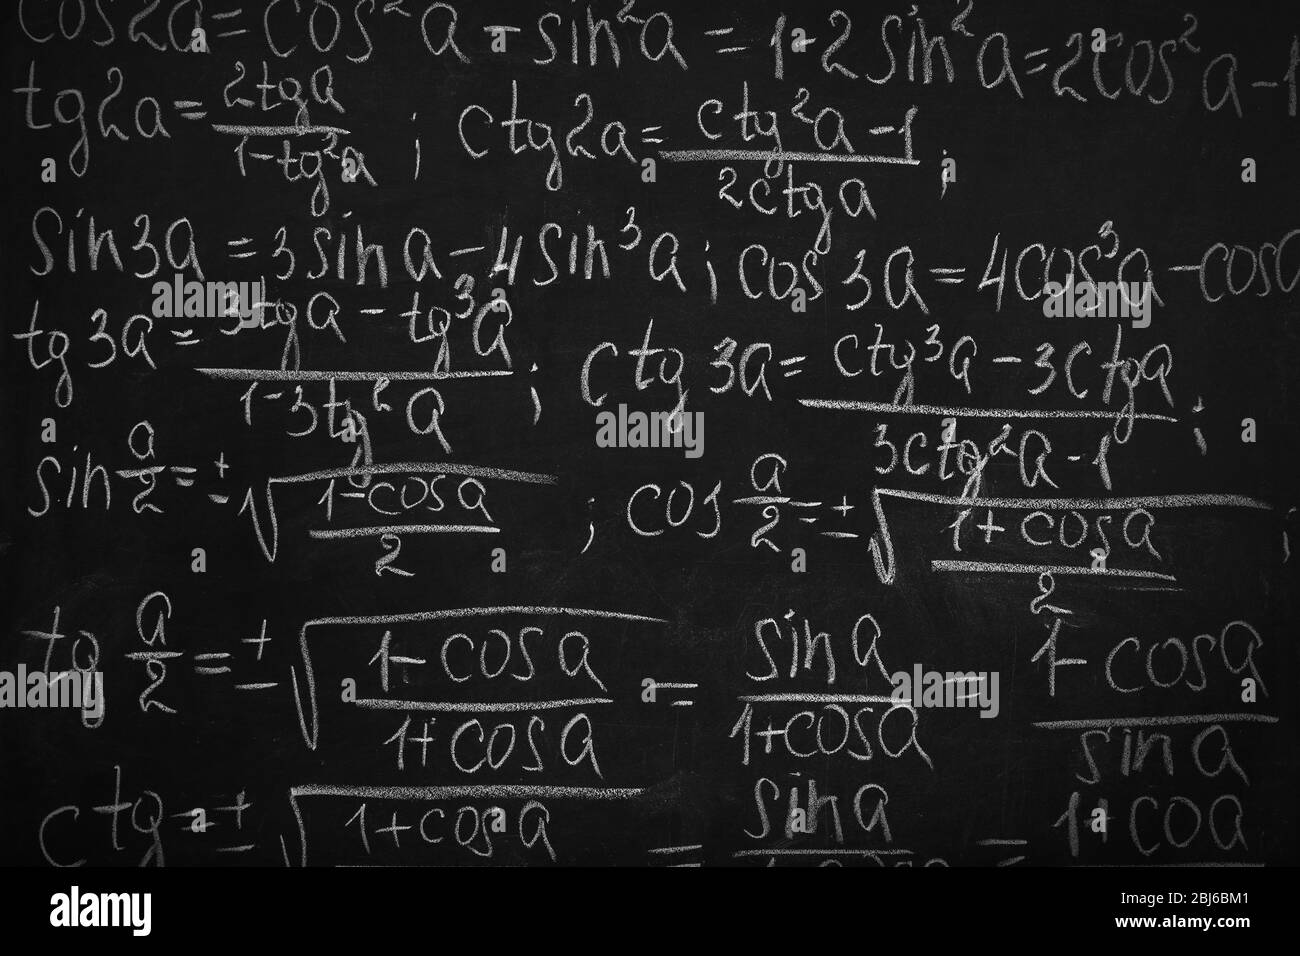 cos2a=cos²a-sin²a=1-2sin²a=2cos²a-1
tg2a=2tga/1-tg²a; ctg2a=ctg²a-1/2ctga;
sin3a=3sina-4sin³a; cos3a=4cos³a-cosa
tg3a=3tga-tg³a/1-3tg²a; ctg3a=ctg³a-3ctga/3ctg²a-1;
sin a/2=±√1-cosa/2; cos a/2=±√1+cosa/2;
tg a/2=±√1-cosa/1+cosa=sina/1+cosa=1-cosa/sina
ctg=±√1+cosa = sina/1+cosa = 1+coa
alamy
Image ID: 2BJ6BM1
www.alamy.com